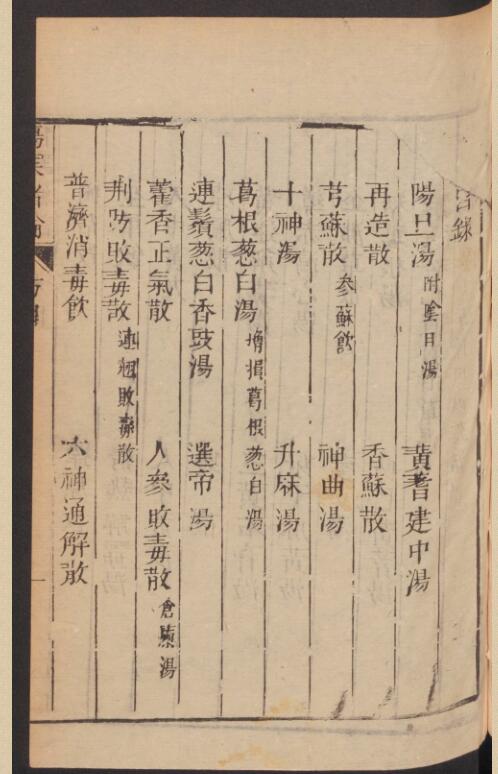 目錄
陽旦湯 附陰旦湯 黃耆建中湯
再造散 香蘇散
芎蘇散 參蘇飲 神曲湯
十神湯 升麻湯
葛根葱白湯 增損葛根葱白湯
連鬚葱白香豉湯 選帝湯
藿香正氣散 人參敗毒散 倉廩湯
荆防敗毒散 連翹敗毒散
普濟消毒飲 六神通解散
一